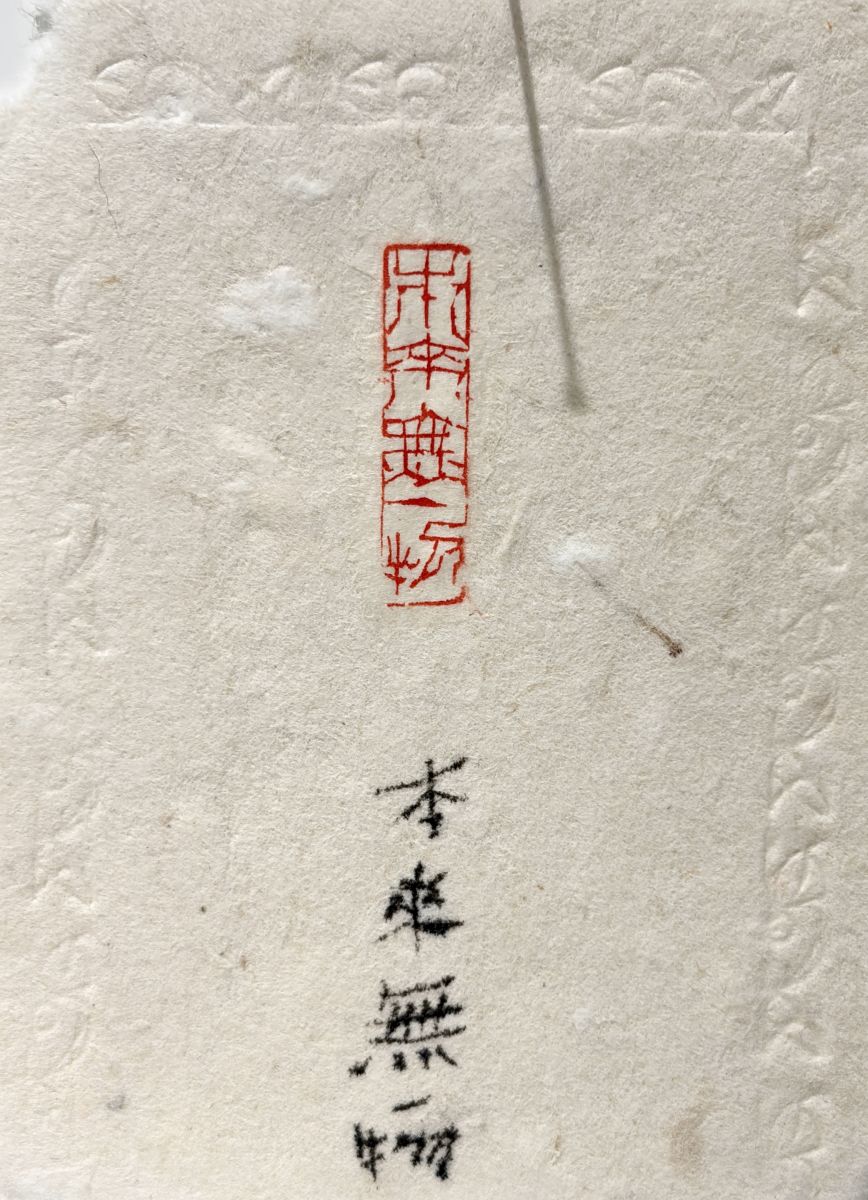 本來無一物
本來無一物